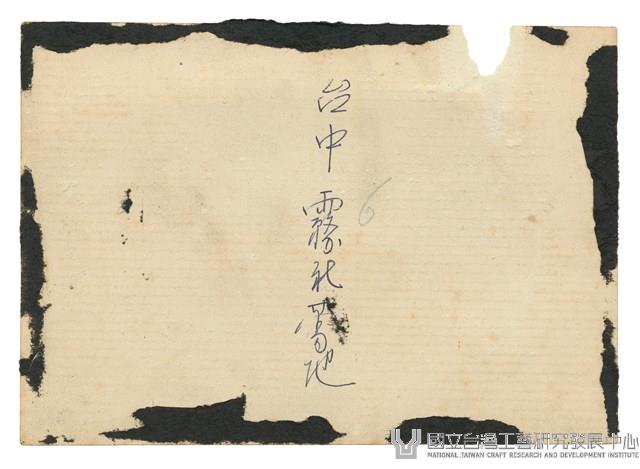 台中霧社蕃地
6
國立台灣工藝研究發展中心
NATIONAL TAIWAN CRAFT RESEARCH AND DEVELOPMENT INSTITUTE